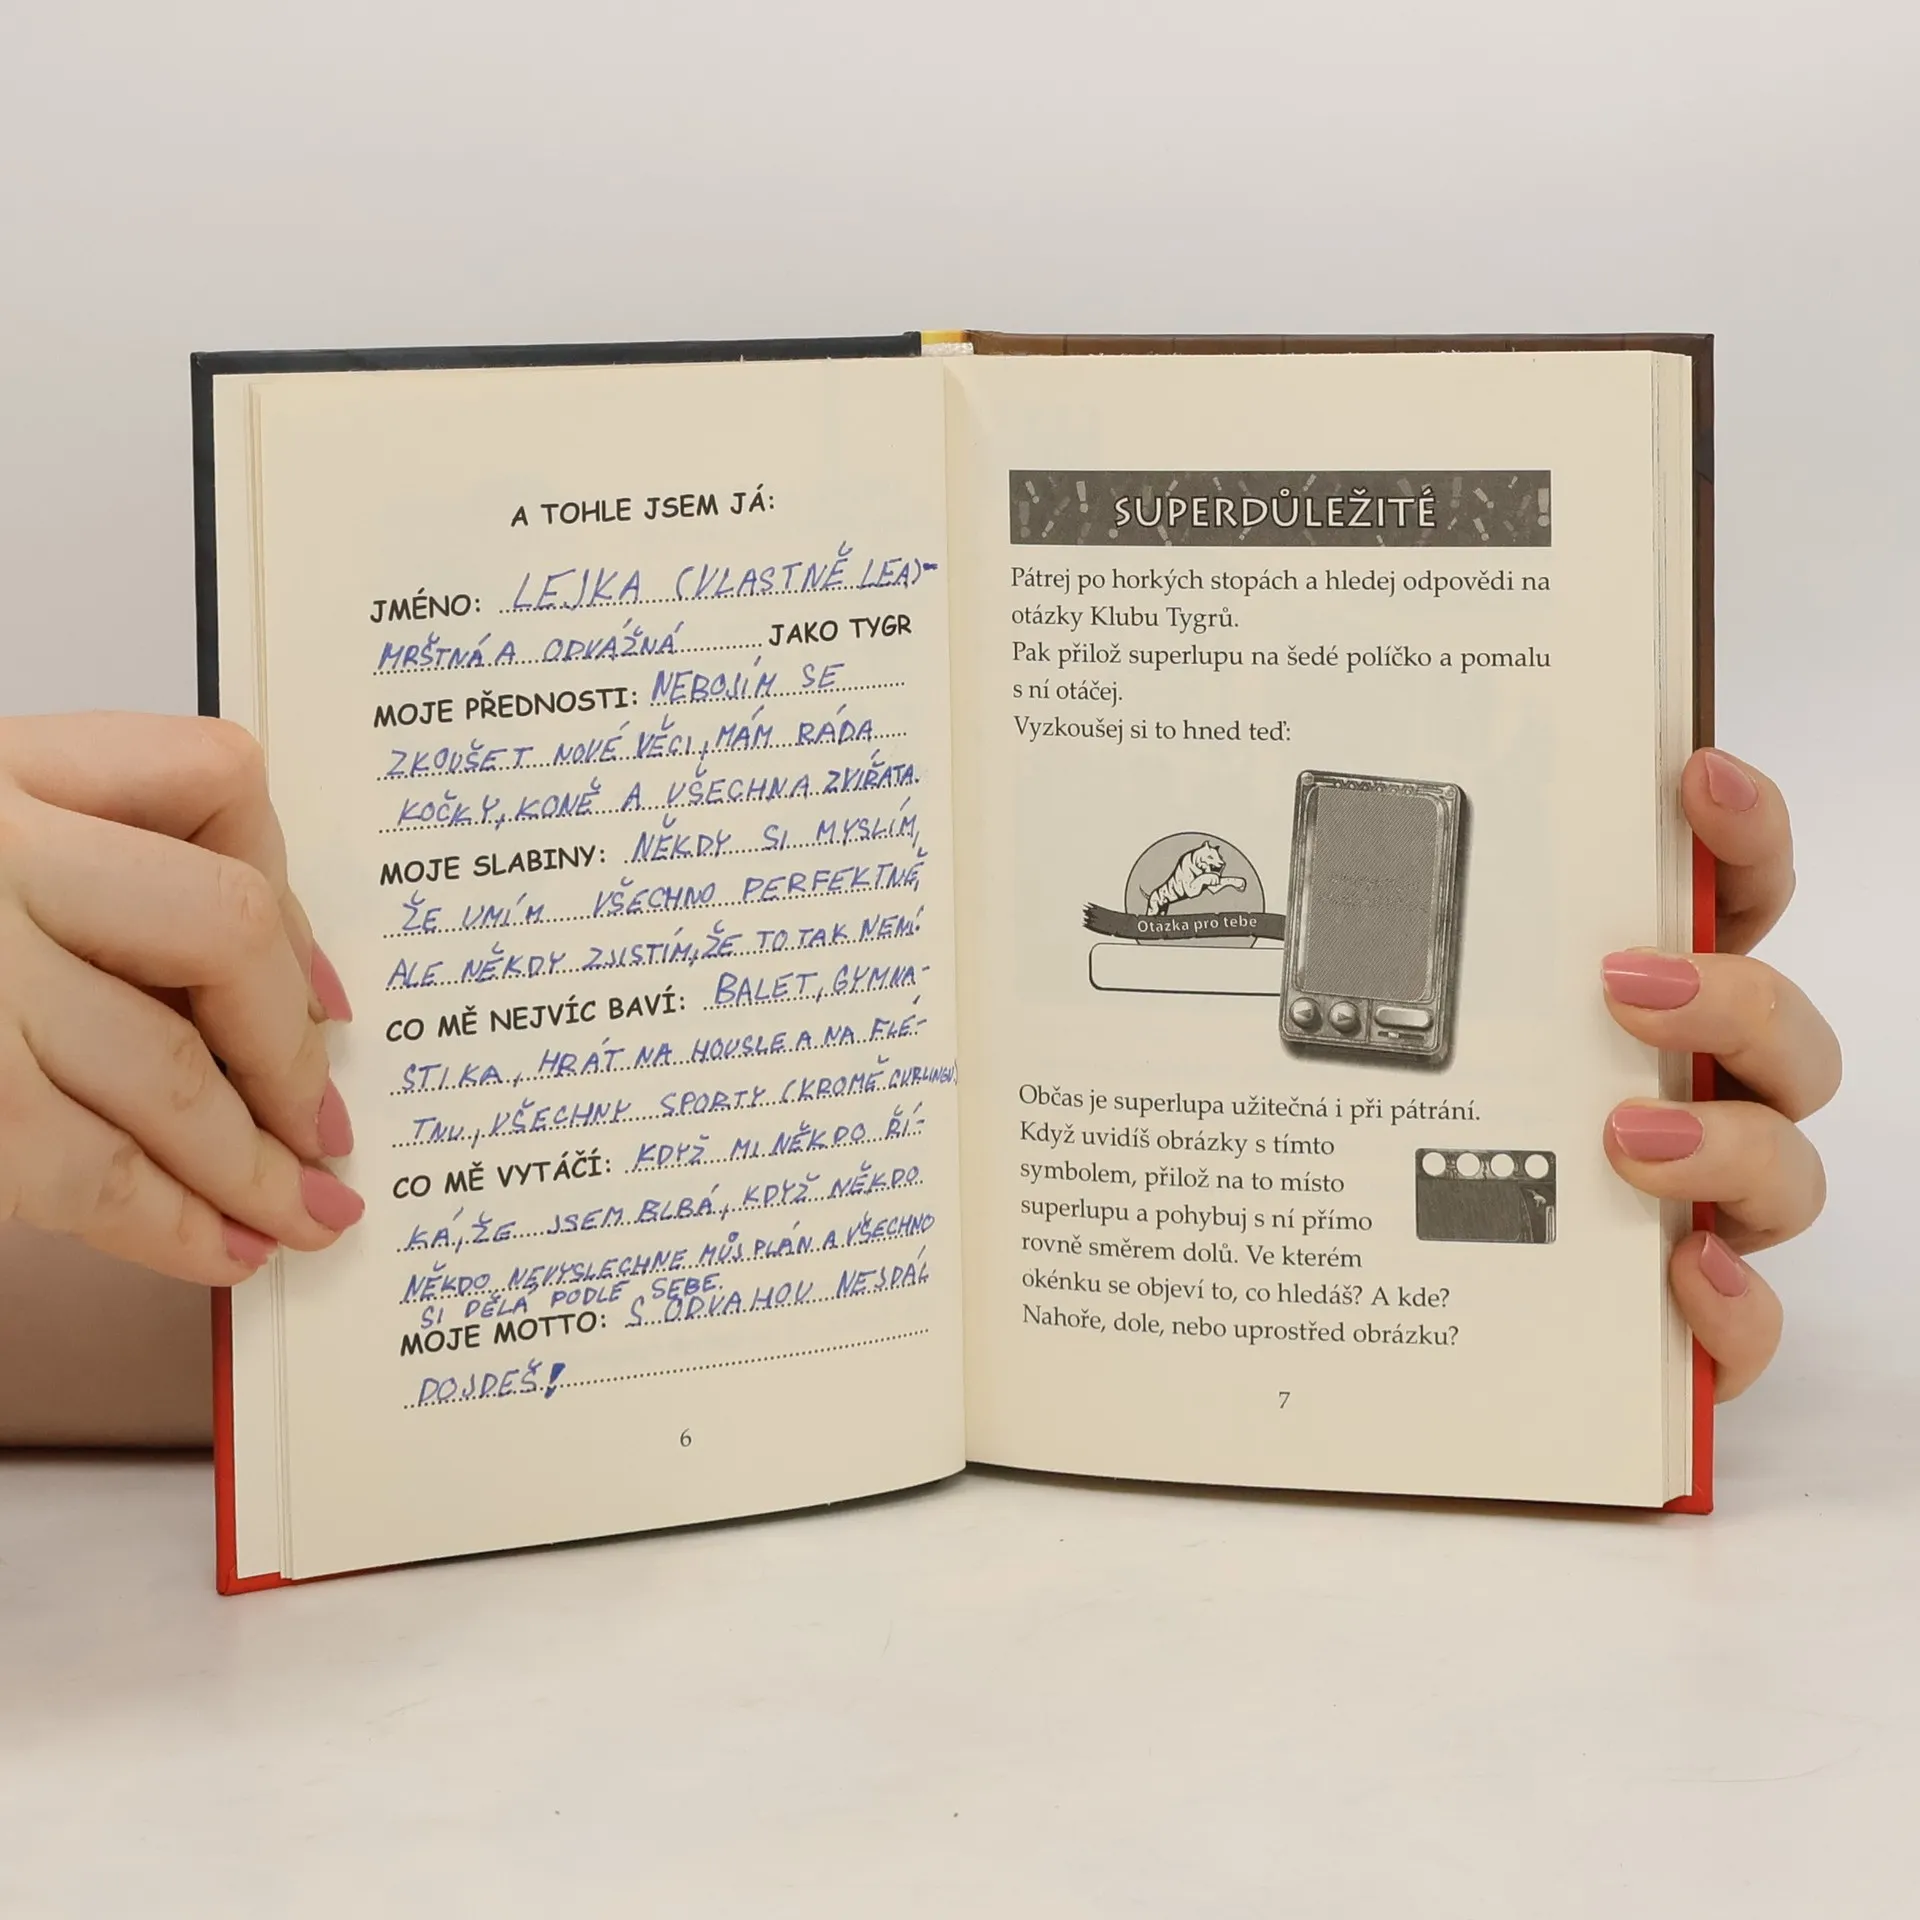 A TOHLE JSEM JÁ:
JMÉNO: LEJKA (VLASTNĚ LEA)-
MRŠTNÁ A ODVÁŽNÁ JAKO TYGR
MOJE PŘEDNOSTI: NEBOJÍM SE
ZKOUŠET NOVÉ VĚCI, MÁM RÁDA
KOČKY, KONĚ A VŠECHNA ZVÍŘATA.
MOJE SLABINY: NĚKDY SI MYSLÍM,
ŽE UMÍM VŠECHNO PERFEKTNĚ,
ALE NĚKDY ZJISTÍM, ŽE TO TAK NENÍ.
CO MĚ NEJVÍC BAVÍ: BALET, GYMNA-
STIKA, HRÁT NA HOUSLE A NA FLÉ-
TNU, VŠECHNY SPORTY (KROMĚ CURLINGU)
CO MĚ VYTÁČÍ: KDYŽ MI NĚKDO ŘÍ-
KÁ, ŽE JSEM BLBÁ, KDYŽ NĚKDO
NĚKDO NEVYSLECHNE MŮJ PLÁN A VŠECHNO
SI DĚLÁ PODLE SEBE.
MOJE MOTTO: S ODVAHOU NEJDÁL
DOJDEŠ!
6
SUPERDŮLEŽITÉ
Pátrej po horkých stopách a hledej odpovědi na
otázky Klubu Tygrů.
Pak přilož superlupu na šedé políčko a pomalu
s ní otáčej.
Vyzkoušej si to hned teď:
Otázka pro tebe
Občas je superlupa užitečná i při pátrání.
Když uvidíš obrázky s tímto
symbolem, přilož na to místo
superlupu a pohybuj s ní přímo
rovně směrem dolů. Ve kterém
okénku se objeví to, co hledáš? A kde?
Nahoře, dole, nebo uprostřed obrázku?
7